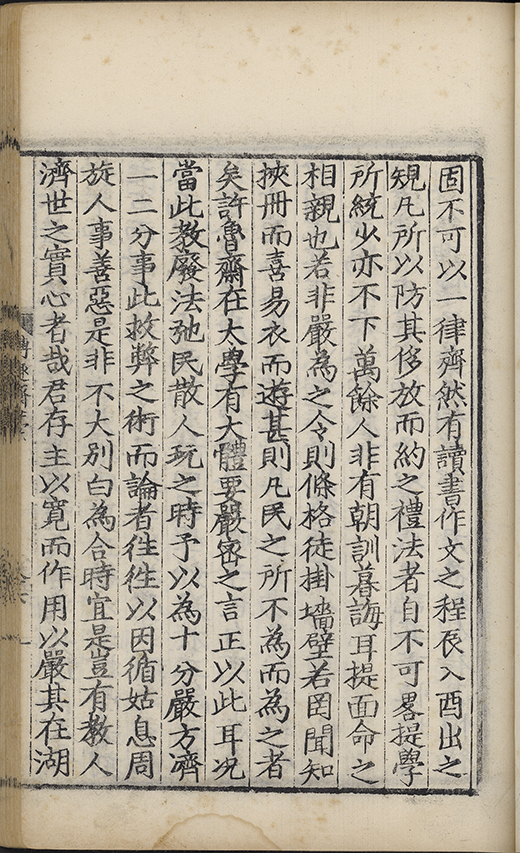 固不可以一律齊然有讀書作文之程辰入酉出之
䂓凡所以防其侈放而約之禮法者自不可畧提學
所統少亦不下萬餘人非有朝訓暮誨耳提面命之
相親也若非嚴為之令則條格徒掛墻壁若罔聞知
挾冊而喜易衣而遊甚則凡民之所不為而為之者
矣許魯齋在太學有大體要嚴密之言正以此耳况
當此教廢法弛民散人玩之時予以為十分嚴方濟
一二分事此救弊之術而論者徃徃以因循姑息周
旋人事善惡是非不大別白為合時宜是豈有教人
濟世之實心者哉君存主以寛而作用以嚴其在湖